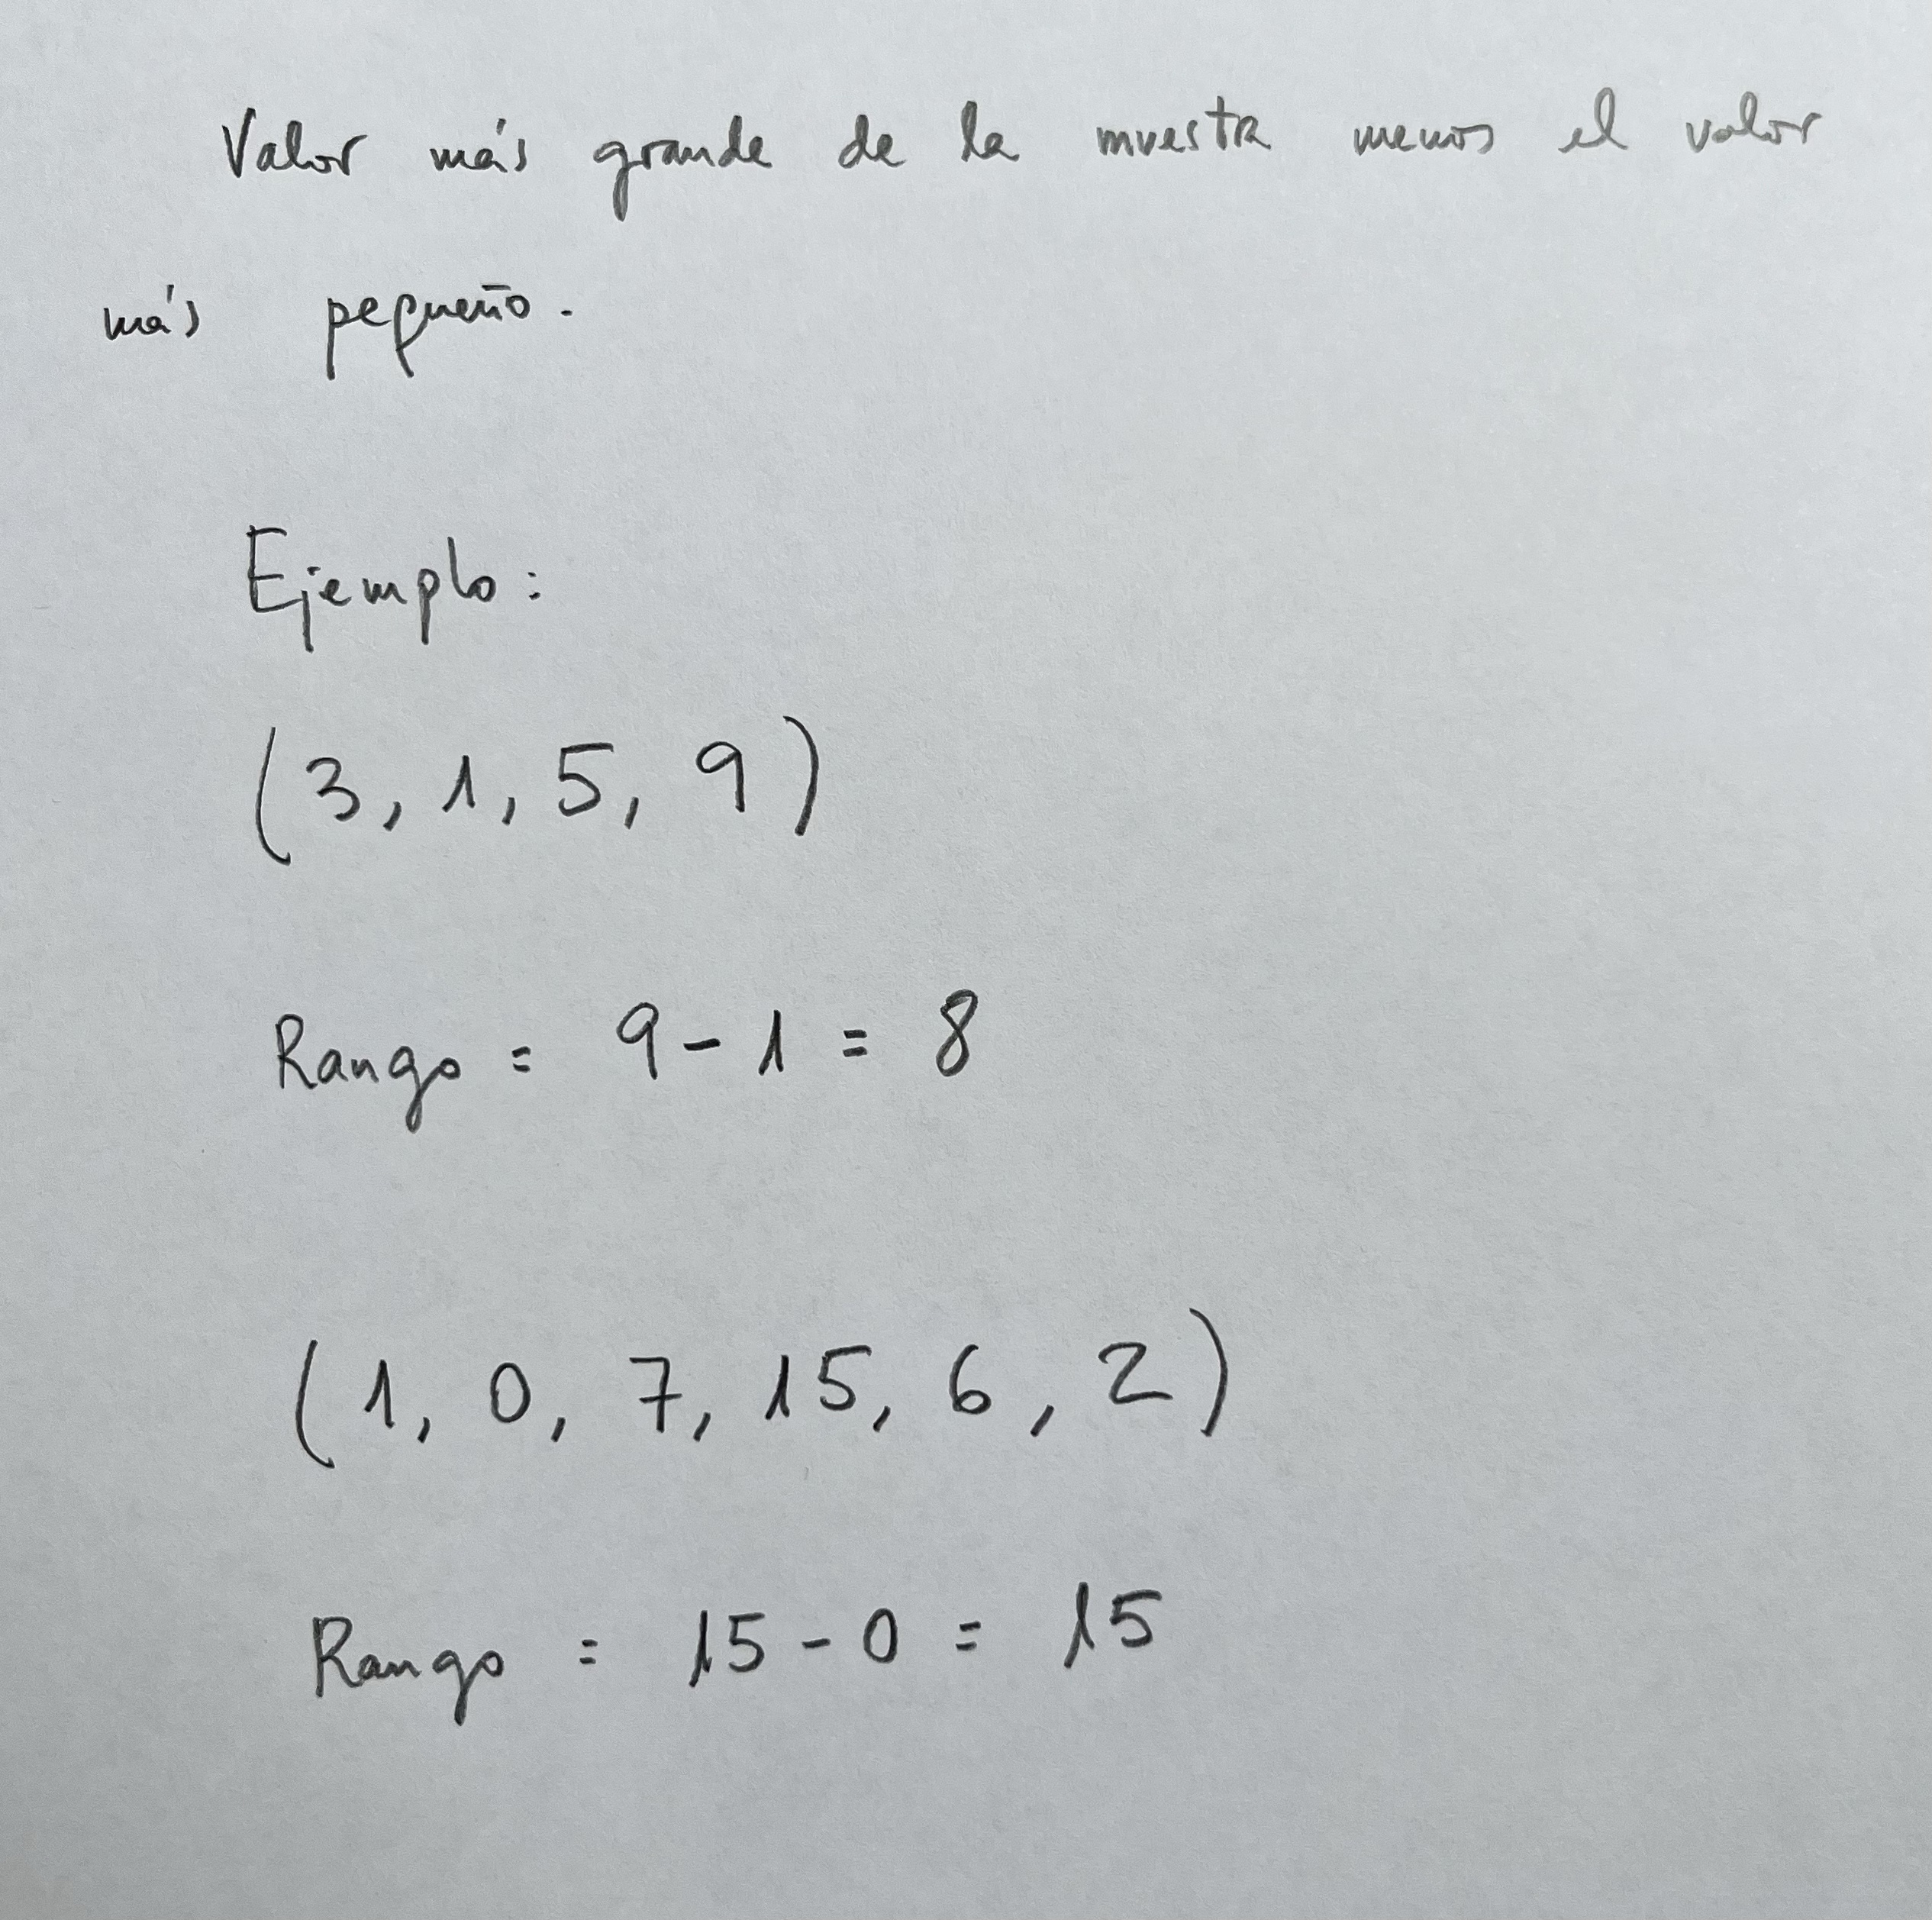 Valor más grande de la muestra menos el valor
más pequeño.
Ejemplo:
(3, 1, 5, 9)
Rango = 9 - 1 = 8
(1, 0, 7, 15, 6, 2)
Rango = 15 - 0 = 15